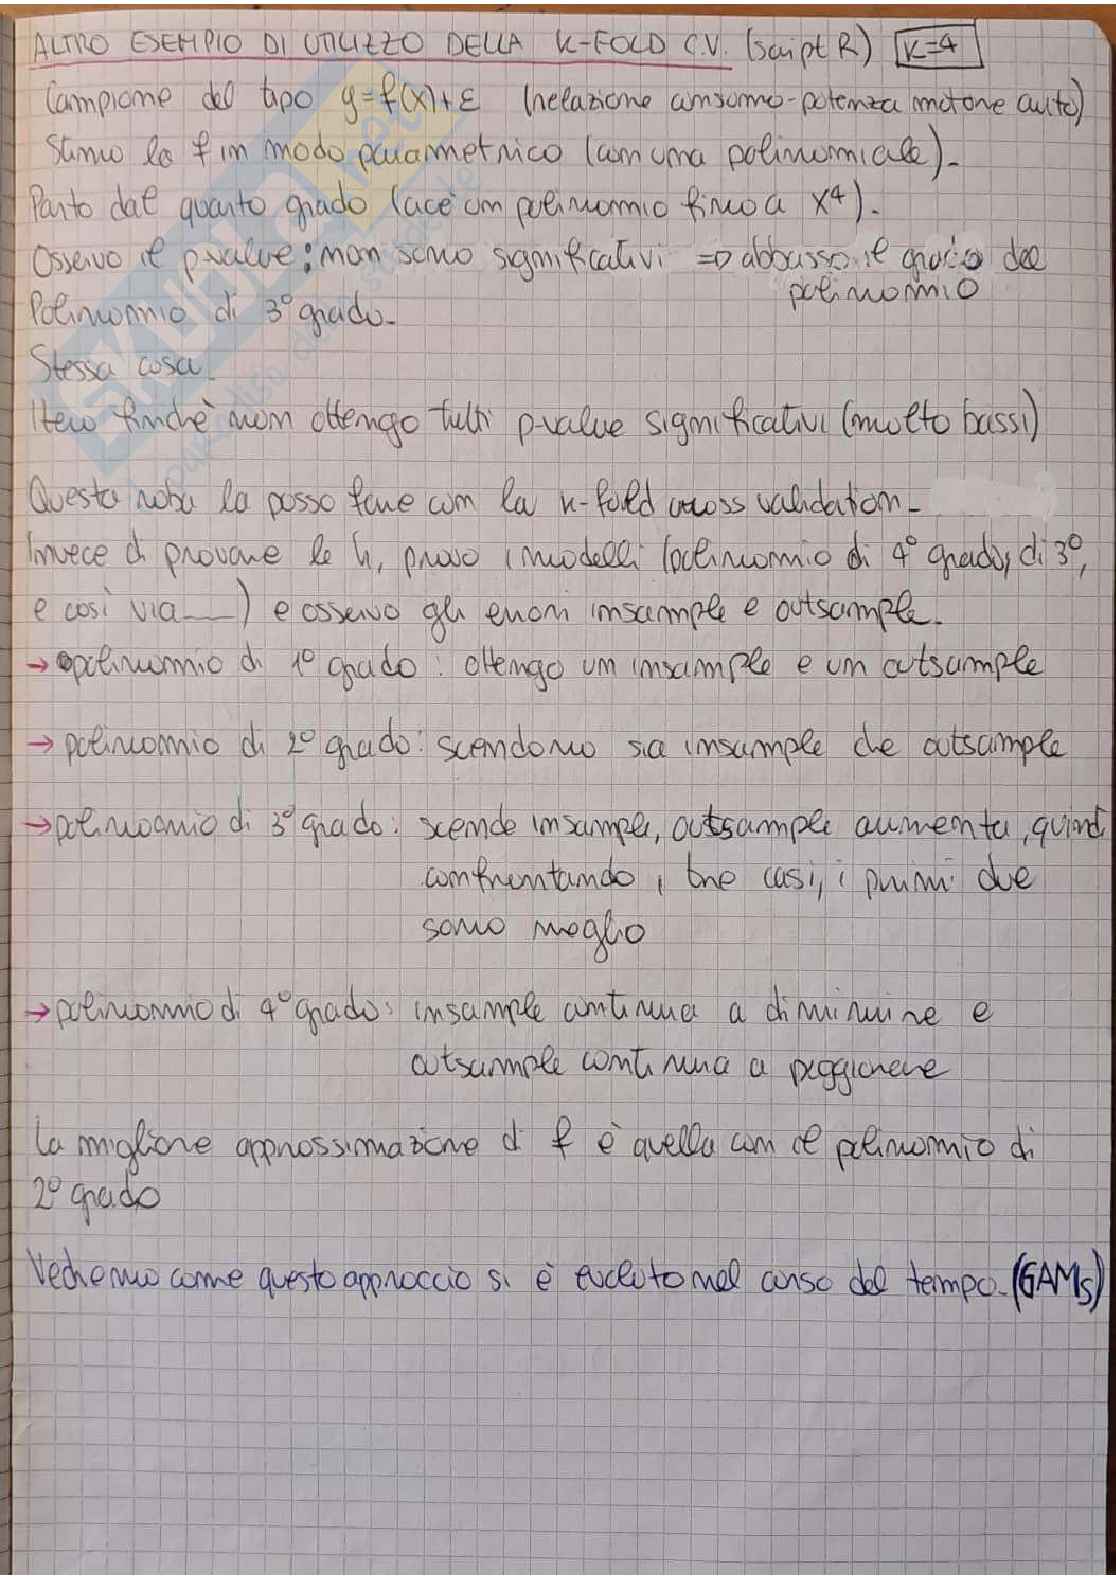 ALTRO ESEMPIO DI UTILIZZO DELLA K-FOLD C.V. (script R) K=4
Campione del tipo y=f(x)+ε (relazione consumo-potenza motore auto)
Stimo la f in modo parametrico (con una polinomiale).
Parto dal quarto grado (cioè un polinomio fino a x⁴).
Osservo il p.value: non sono significativi => abbasso il grado del
polinomio
Polinomio di 3° grado.
Stessa cosa.
Itero finchè non ottengo tutti p-value significativi (molto bassi)
Questa roba la posso fare con la k-fold cross validation.
Invece di provare le h, provo i modelli (polinomio di 4° grado, di 3°,
e così via...) e osservo gli errori insample e outsample.
→ polinomio di 1° grado: ottengo un insample e un outsample
→ polinomio di 2° grado: scendono sia insample che outsample
→ polinomio di 3° grado: scende insample, outsample aumenta, quindi
confrontando i tre casi, i primi due
sono meglio
→ polinomio di 4° grado: insample continua a diminuire e
outsample continua a peggiorare
La migliore approssimazione di f è quella con il polinomio di
2° grado
Vedremo come questo approccio si è evoluto nel corso del tempo. (GAMs)